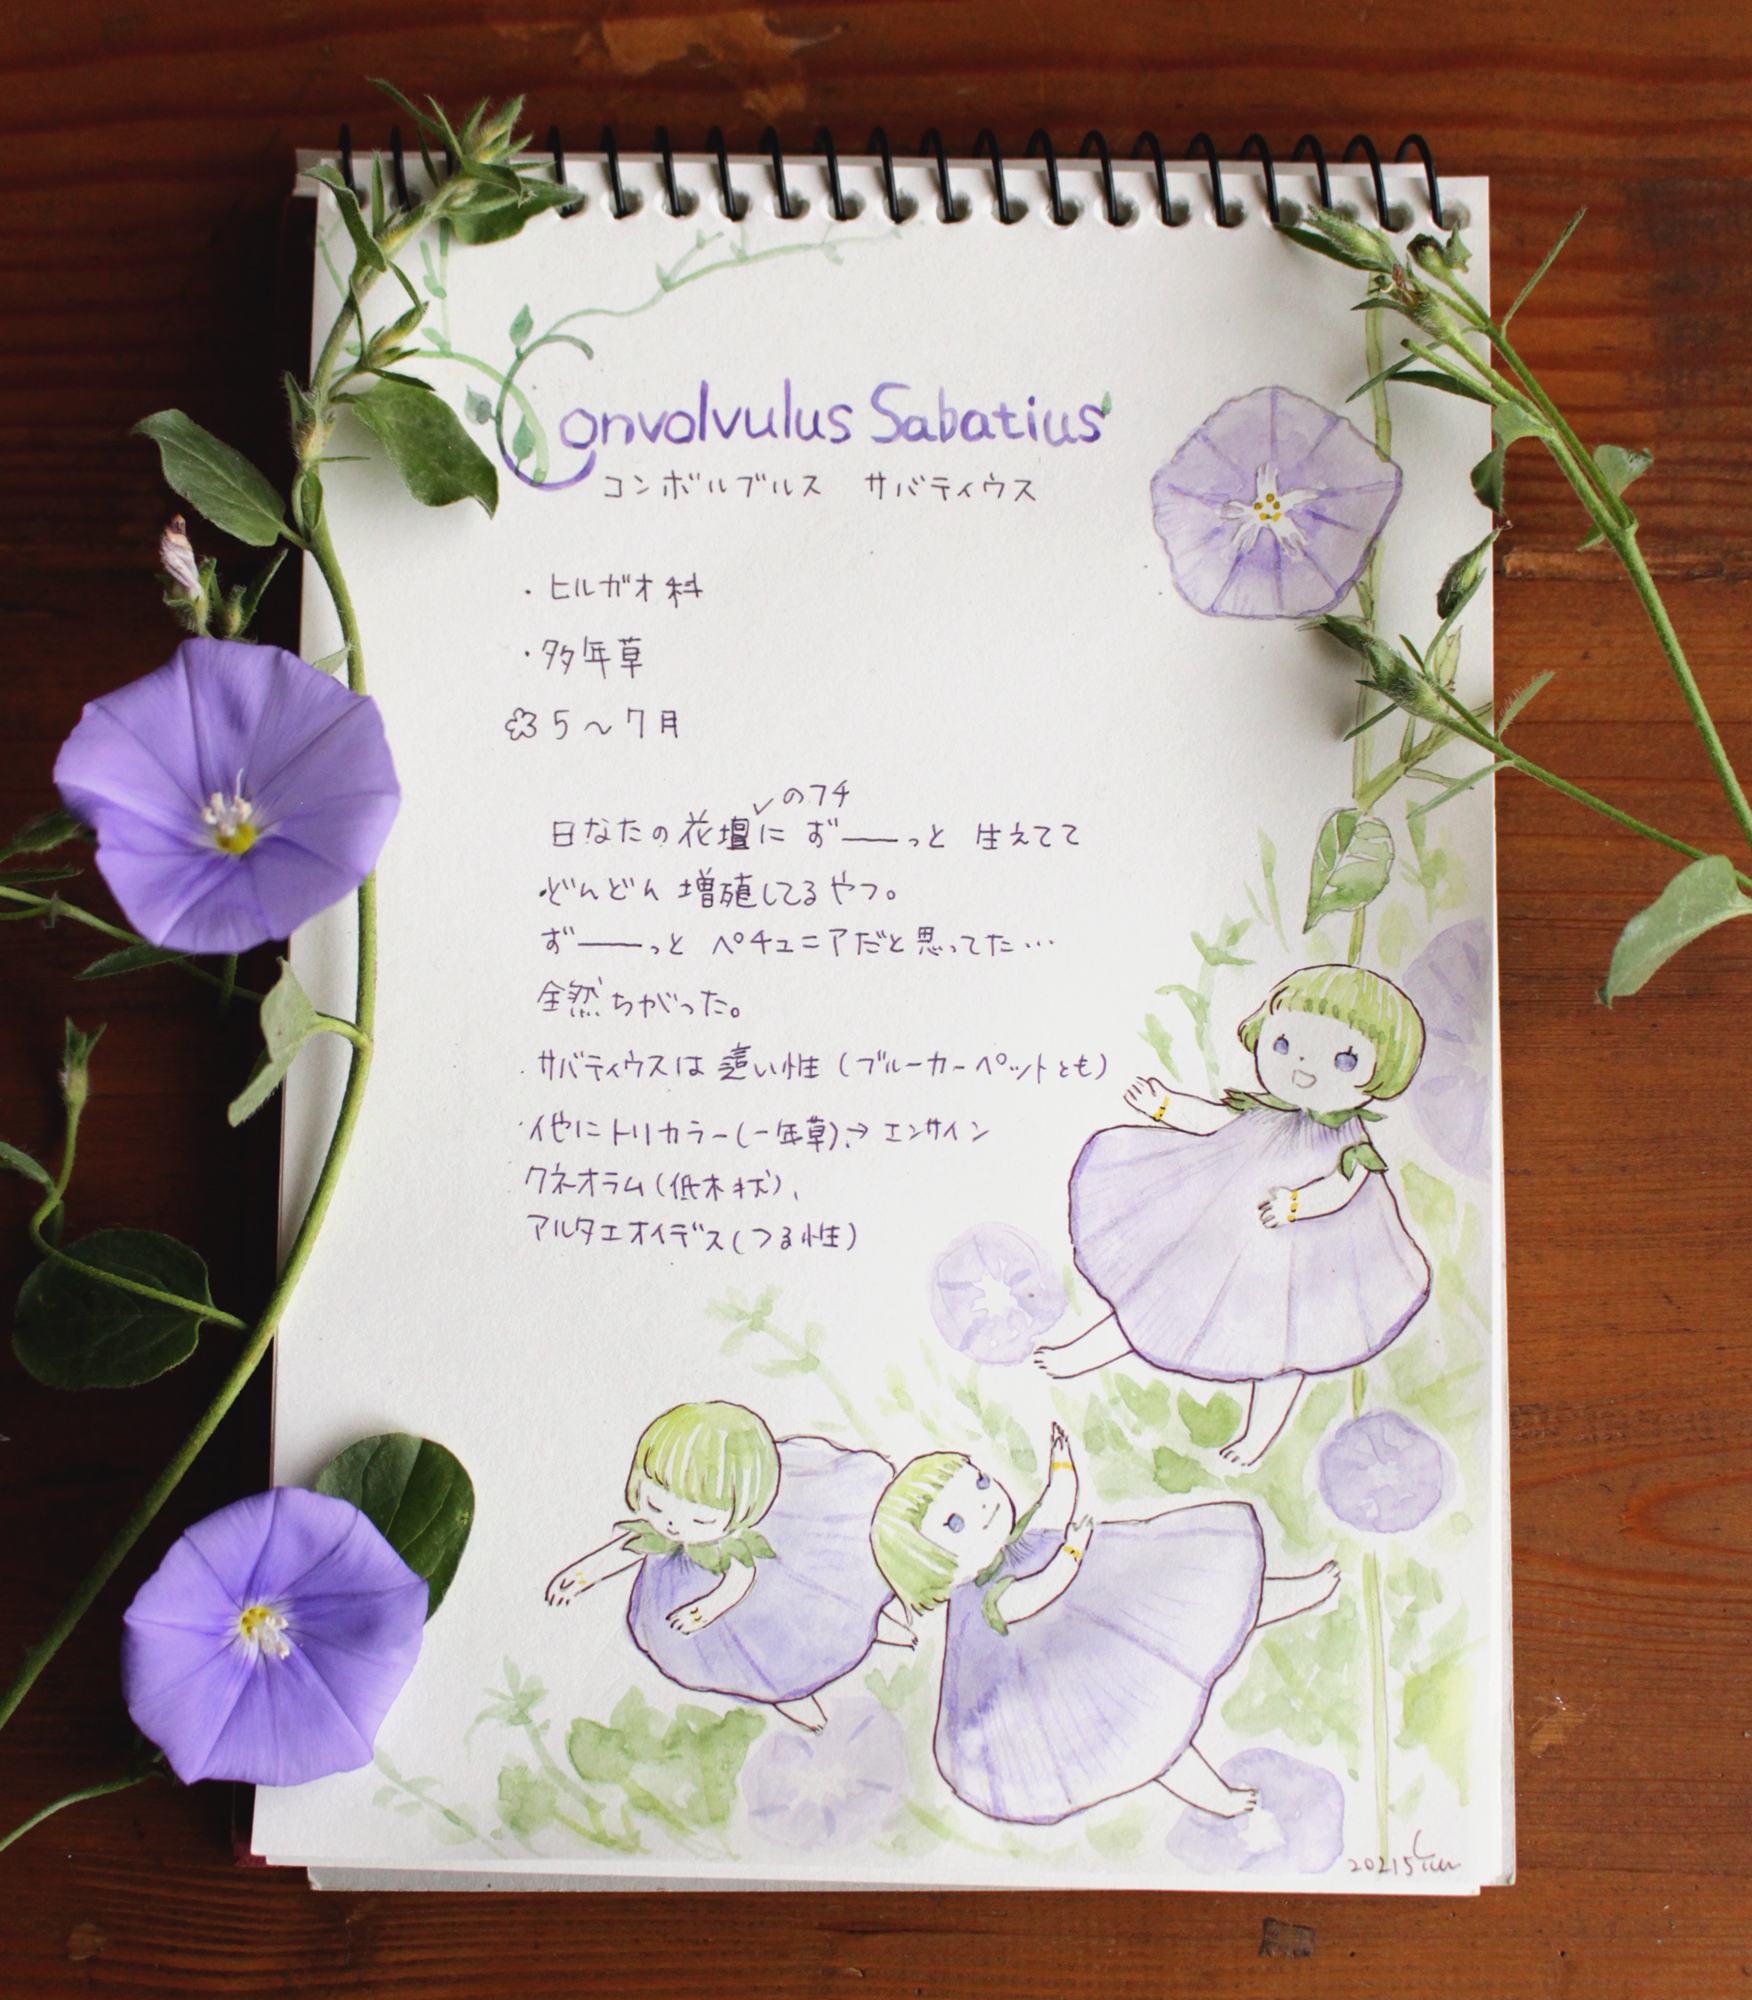 Convolvulus Sabatius
コンボルブルス サバティウス
・ヒルガオ科
・多年草
5〜7月
のフチ
日なたの花壇に ず――っと 生えてて
どんどん 増殖してるやつ。
ず――っと ペチュニアだと思ってた…
全然ちがった。
・サバティウスは這い性(ブルーカーペットとも)
・他にトリカラー(一年草)、→ エンサイン
クネオラム(低木状)、
アルタエオイデス(つる性)
20215